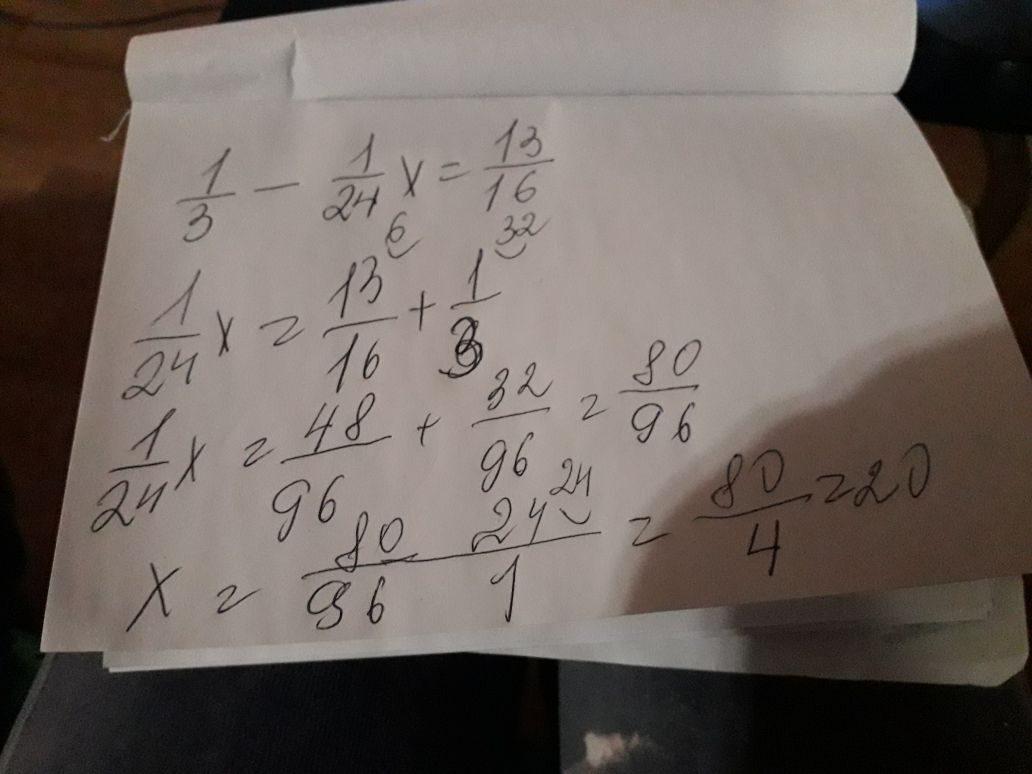 1/3 - 1/24 x = 13/16
1/24 x = 13/16 ⁶ + 1/3 ³²
1/24 x = 48/96 + 32/96 = 80/96
x = 80/96 24/1 ²⁴ = 80/4 = 20